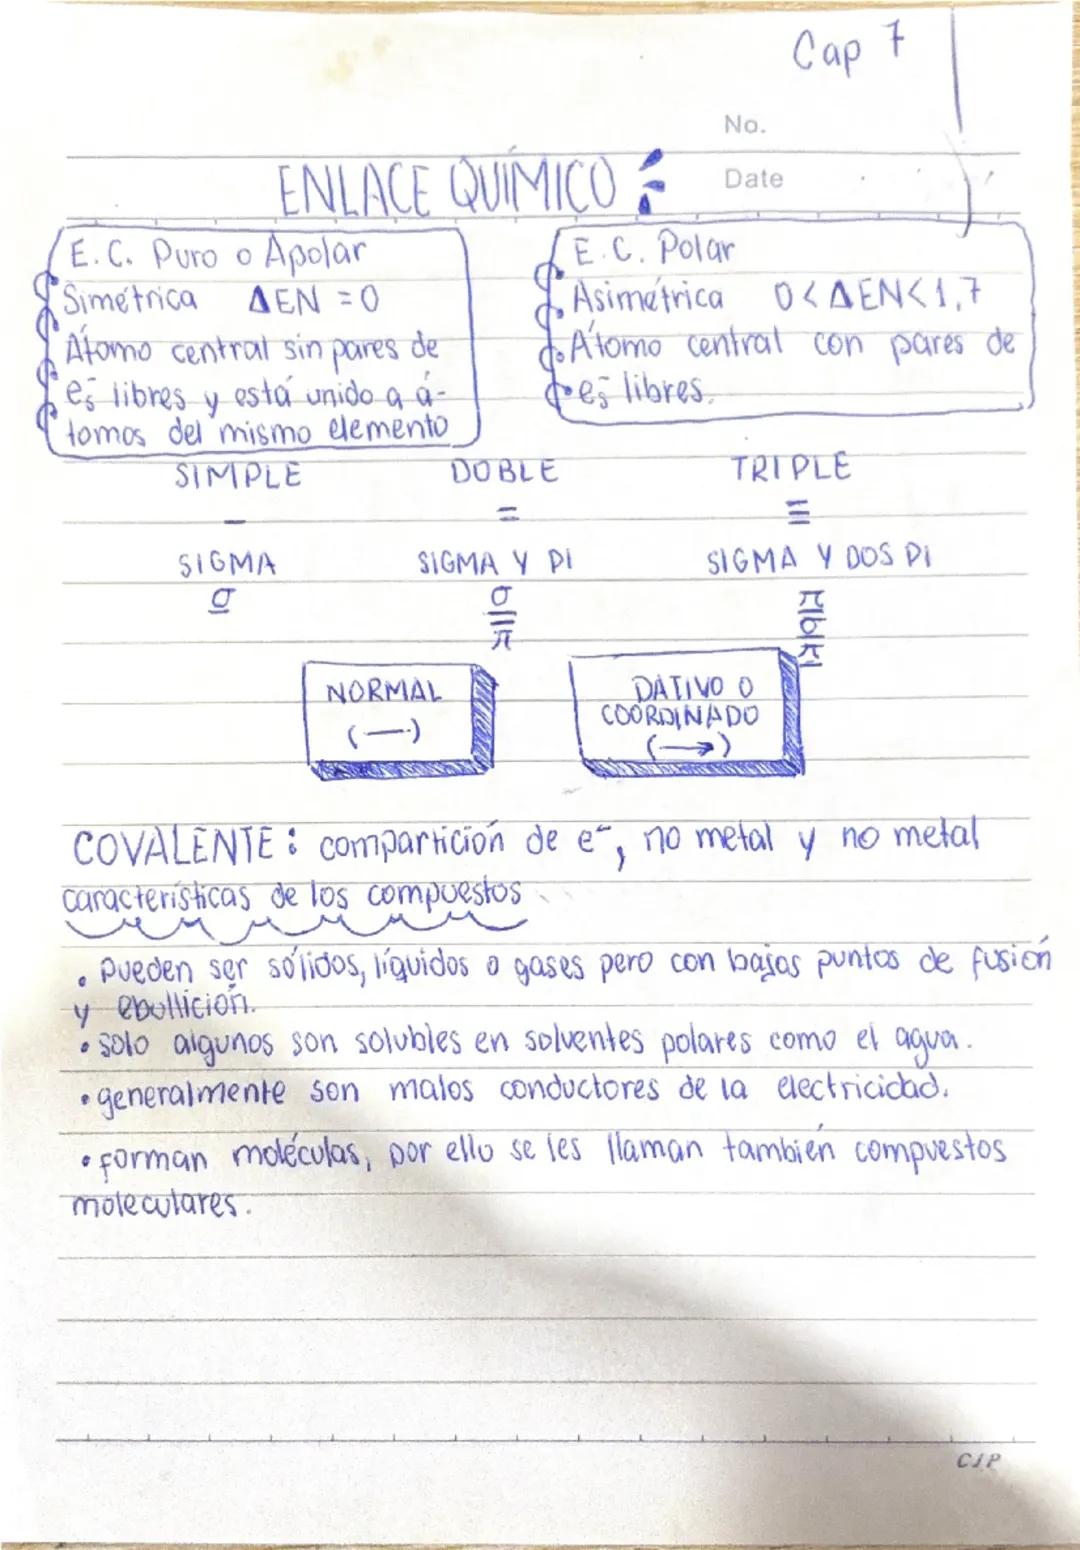 Cap 7
No.
ENLACE QUÍMICO
Date
E.C. Puro o Apolar
Simétrica ΔEN = 0
Átomo central sin pares de
e⁻s libres y está unido a á-
tomos del mismo elemento
E.C. Polar
Asimétrica 0<ΔEN<1,7
Átomo central con pares de
e⁻s libres.
SIMPLE DOBLE TRIPLE
— = ≡
SIGMA SIGMA Y PI SIGMA Y DOS PI
σ σ = π π σ π
NORMAL
(—)
DATIVO O
COORDINADO
(→)
COVALENTE: compartición de e⁻, no metal y no metal
características de los compuestos
• Pueden ser sólidos, líquidos o gases pero con bajos puntos de fusión
y ebullición.
• solo algunos son solubles en solventes polares como el agua.
• generalmente son malos conductores de la electricidad.
• forman moléculas, por ello se les llaman también compuestos
moleculares.
CJP